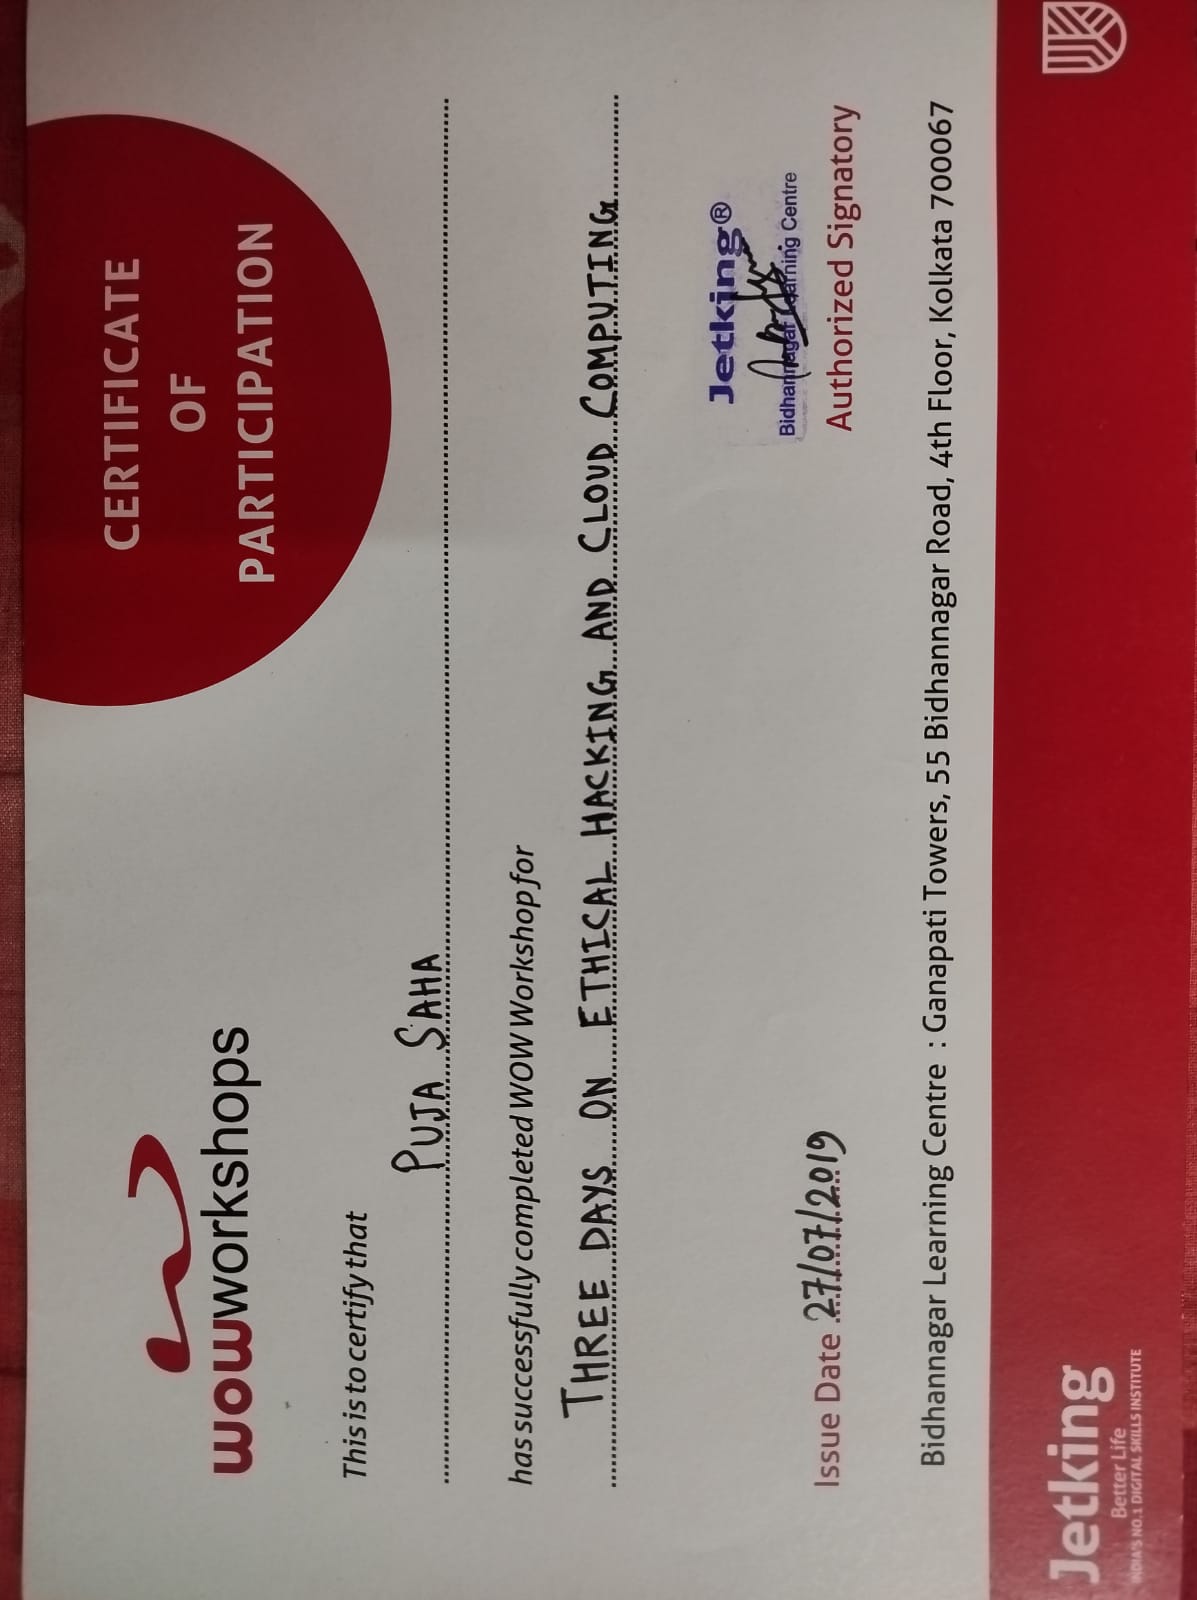 wowworkshops
CERTIFICATE
OF
PARTICIPATION
This is to certify that
PUJA SAHA
has successfully completed WOW Workshop for
THREE DAYS ON ETHICAL HACKING AND CLOUD COMPUTING
Jetking®
Bidhannagar Learning Centre
Issue Date 27/07/2019
Authorized Signatory
Bidhannagar Learning Centre : Ganapati Towers, 55 Bidhannagar Road, 4th Floor, Kolkata 700067
Jetking
Better Life
INDIA'S NO.1 DIGITAL SKILLS INSTITUTE